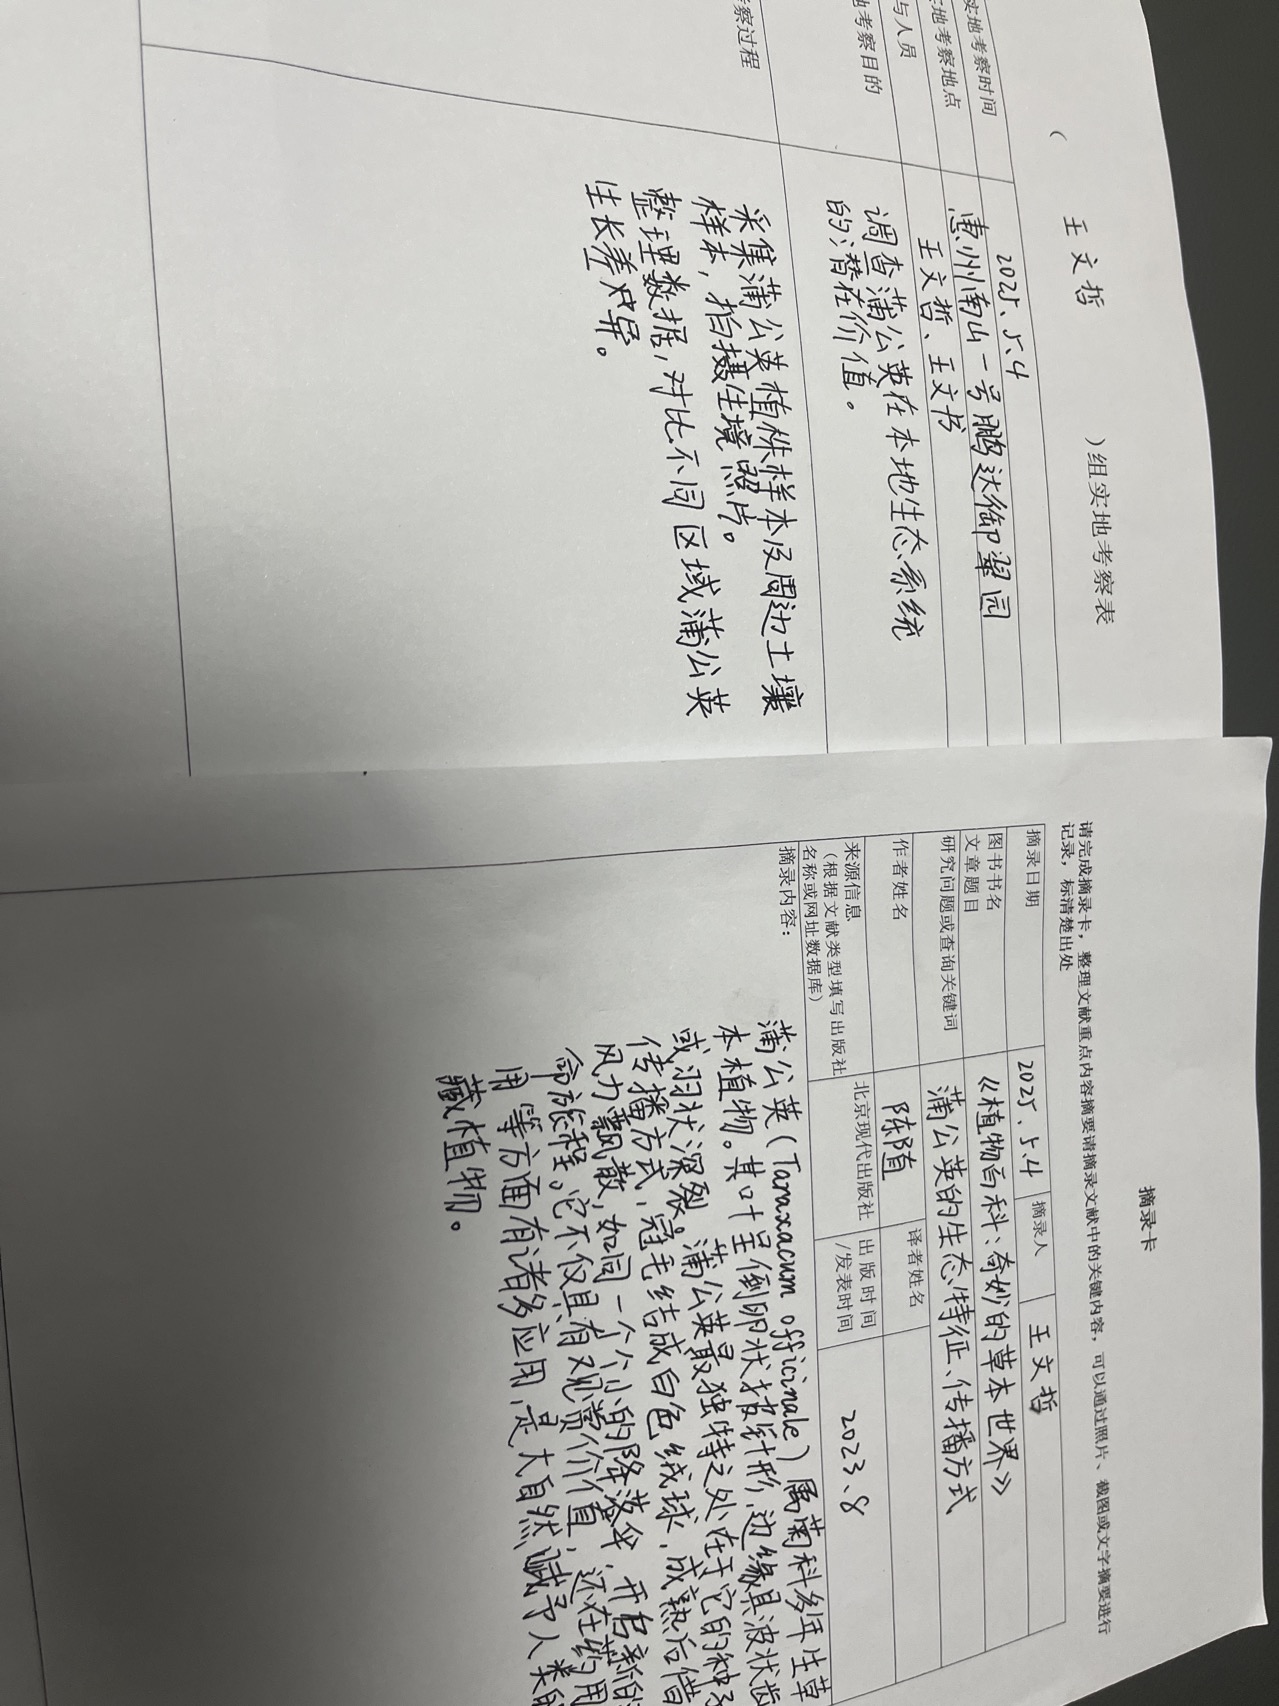 ( 王文哲 )组实地考察表
实地考察时间 2025.5.4
实地考察地点 惠州南山一号鹏达御翠园
与人员 王文哲、王文书
地考察目的 调查蒲公英在本地生态系统
的潜在价值。
察过程
采集蒲公英植株样本及周边土壤
样本，拍摄生境照片。
整理数据，对比不同区域蒲公英
生长差异。
摘录卡
请完成摘录卡，整理文献重点内容摘要请摘录文献中的关键内容，可以通过照片、截图或文字摘要进行
记录，标清楚出处
摘录日期 2025.5.4 摘录人 王文哲
图书书名
文章题目
《植物百科：奇妙的草本世界》
研究问题或查询关键词 蒲公英的生态特征、传播方式
作者姓名 陈随 译者姓名
来源信息
（根据文献类型填写出版社
名称或网址数据库）
北京现代出版社
出版时间
/发表时间
2023.8
摘录内容：
蒲公英(Taraxacum officinale)属菊科多年生草
本植物。其叶呈倒卵状披针形，边缘具波状齿
或羽状深裂。蒲公英最独特之处在于它的种子
传播方式，冠毛结成白色绒球，成熟后借
风力飘散，如同一个个小的降落伞，开启新的
命旅程。它不仅具有观赏价值，还在药用
用等方面有诸多应用，是大自然赋予人类的
藏植物。